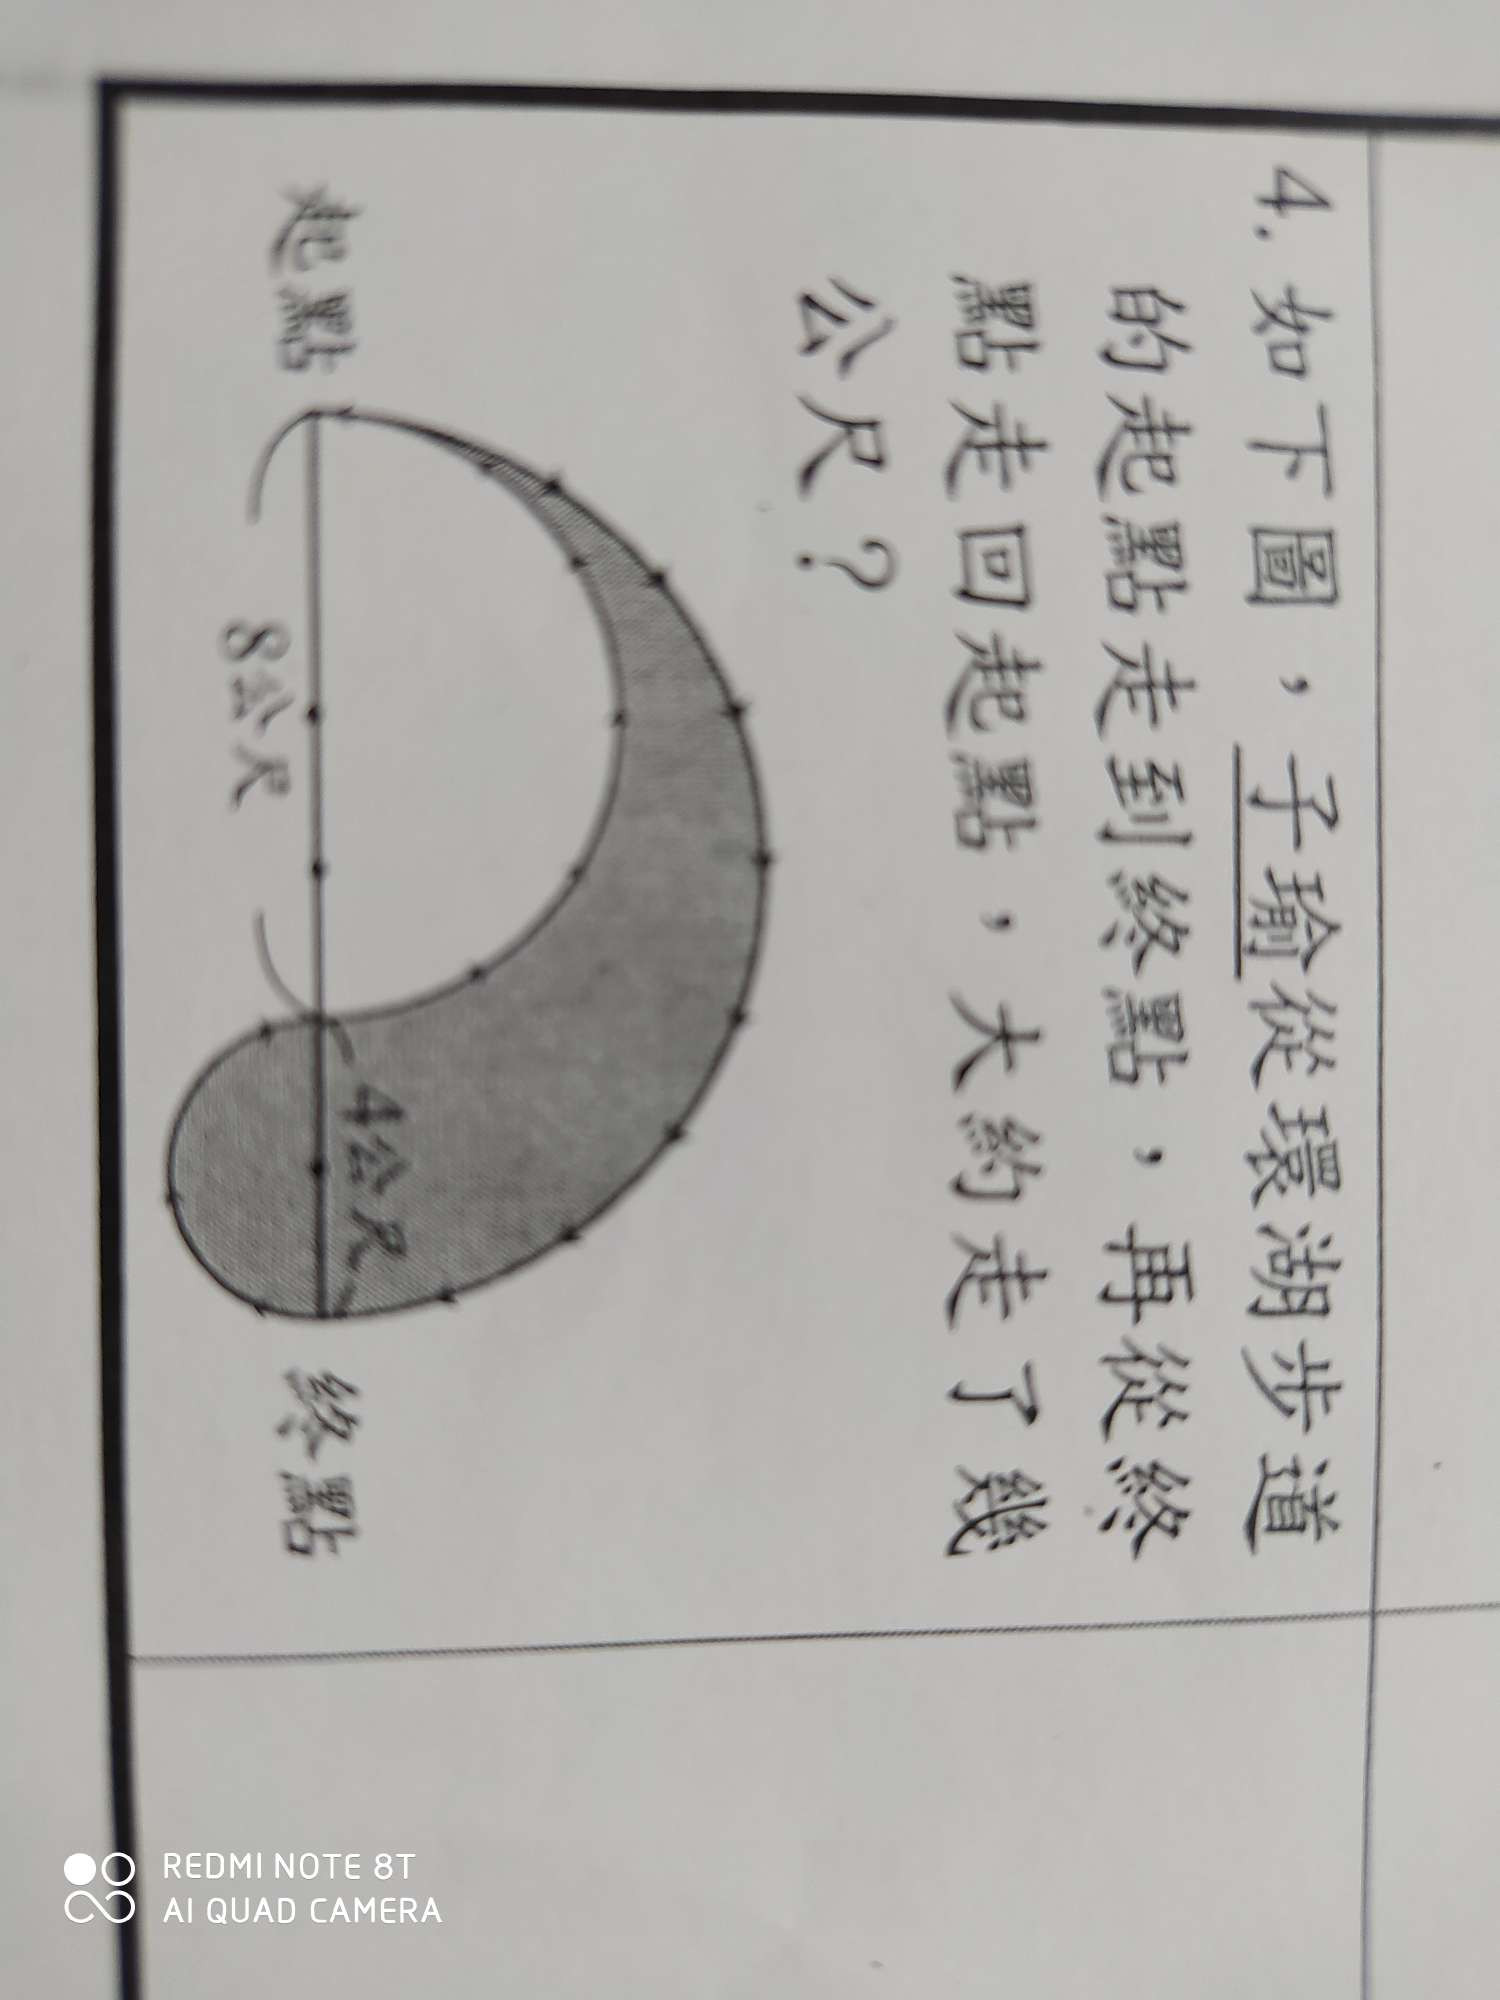 4. 如下圖，子瑜從環湖步道
的起點走到終點，再從終
點走回起點，大約走了幾
公尺？
起點
8公尺
4公尺
終點
REDMI NOTE 8T
AI QUAD CAMERA